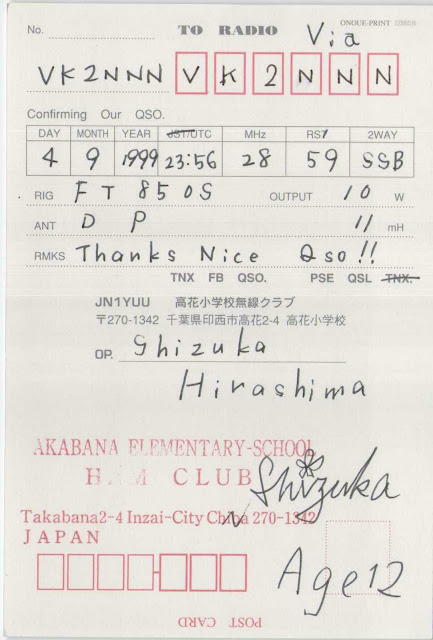 ONOUE-PRINT
No. TO RADIO Via
VK2NNN V K 2 N N N
Confirming Our QSO.
DAY MONTH YEAR JST/UTC MHz RST 2WAY
4 9 1999 23:56 28 59 SSB
RIG FT 850S OUTPUT 10 W
ANT DP 11 mH
RMKS Thanks Nice Qso!!
TNX FB QSO. PSE QSL TNX.
JN1YUU 高花小学校無線クラブ
〒270-1342 千葉県印西市高花2-4 高花小学校
OP. Shizuka
Hirashima
AKABANA ELEMENTARY-SCHOOL
HAM CLUB
Shizuka
Takabana2-4 Inzai-City Chiba 270-1342
JAPAN
Age 12
POST CARD